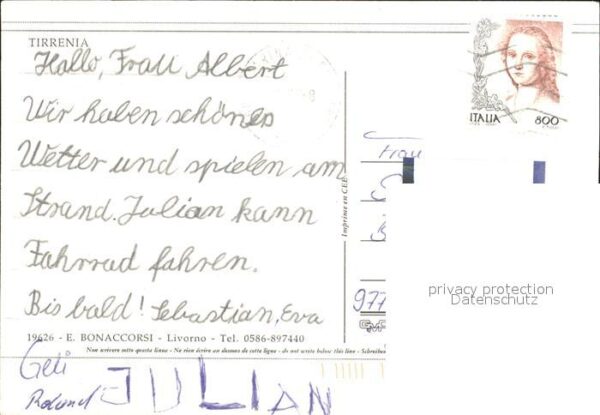 TIRRENIA
Hallo, Frau Albert
Wir haben schönes
Wetter und spielen am
Strand. Julian kann
Fahrrad fahren.
Bis bald! Sebastian, Eva
19626 - E. BONACCORSI - Livorno - Tel. 0586-897440
Non scrivere sotto questa linea - Ne rien écrire au dessous de cette ligne - do not write below this line - Schreiben
Geli
Roland
JULIAN
Imprime en CEE
ITALIA 800
Frau
977
privacy protection
Datenschutz